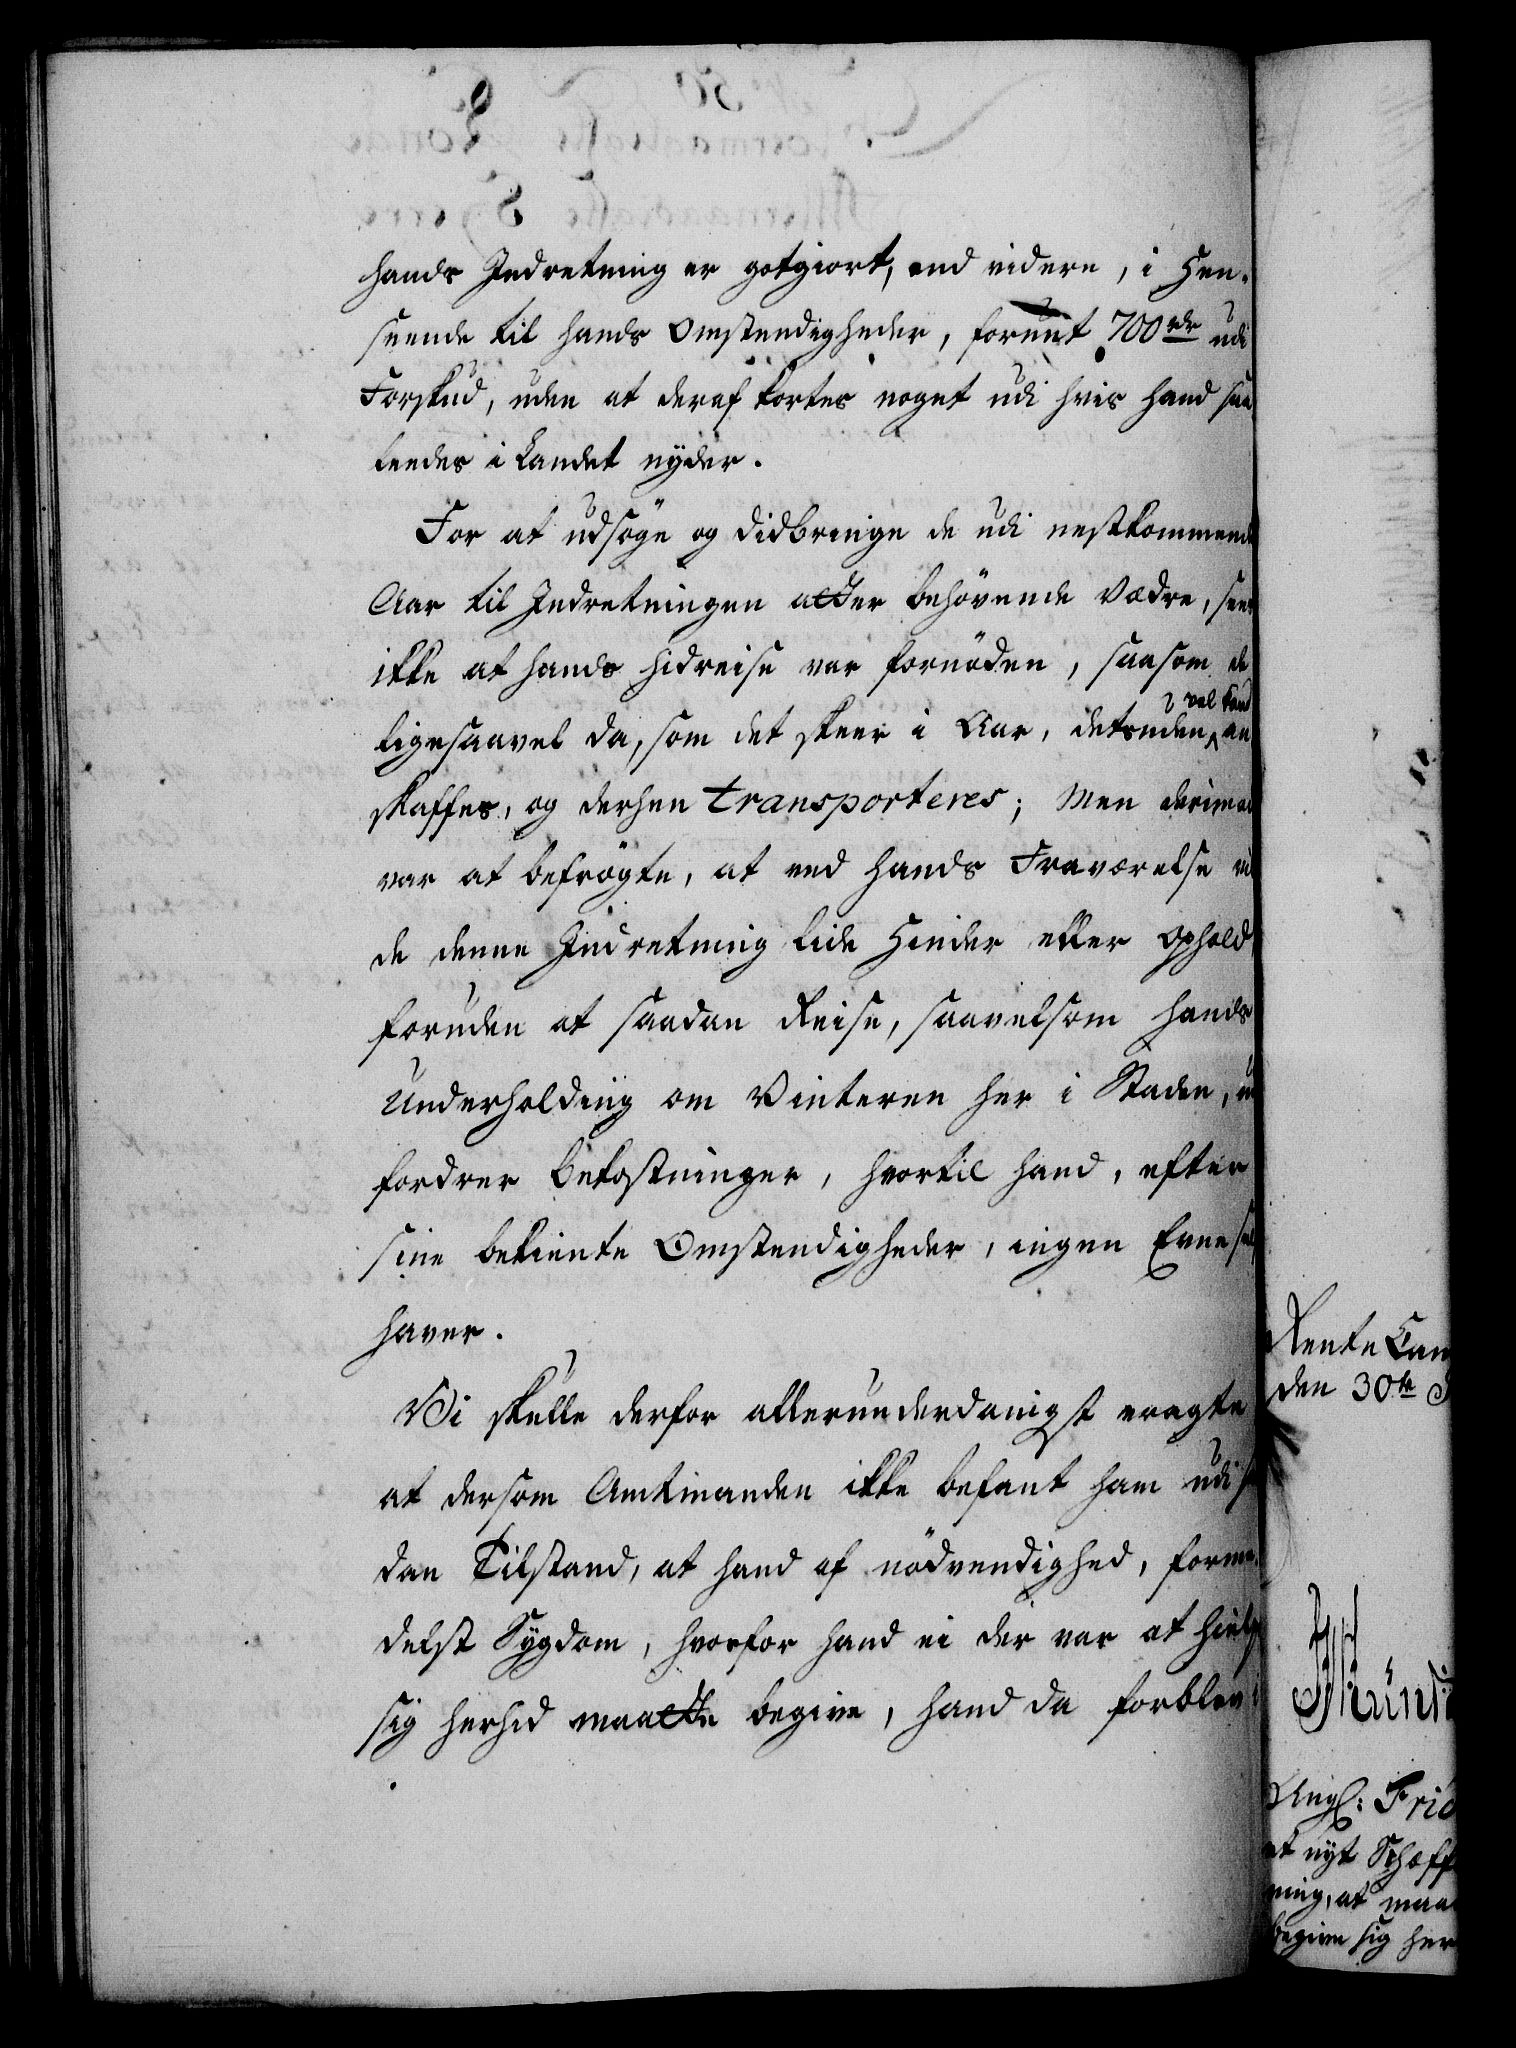 hands Indretning er gotgiort, end videre, i Hen-
seende til hands Omstendigheder, forunt 700 rdr udi
Forskud, uden at deraf kortes noget udi hvis hand saa
leedes i Landet nyder.
For at udsöge og didbringe de udi nestkommende
Aar til Indretningen atter behövende Vædre, seer
ikke at hands hidreise var fornöden, saasom de
ligesaavel da, som det skeer i Aar, desuden vel kand an
skaffes, og derhen transporteres; Men derimod
var at befrögte, at ved hands Fraværelse vil
de denne Indretning lide Hinder eller Ophold,
foruden at saadan Reise, saavelsom hands
Underholding om Vinteren her i Staden, ud
fordrer bekostninger, hvortil hand, efter
sine bekiente Omstendigheder, ingen Evne selv
haver.
Vi skulle derfor allerunderdanigst eragte
at dersom Amtmanden ikke befant ham udi saa
dan Tilstand, at hand af nödvendighed, forme-
delst Sygdom, hvorfor hand ei der var at hielpe
sig herhid maatte begive, hand da forblev i
Rente Cam
den 30te
Ang: Frid
et nyt Schæff
ning, at maa
begive sig her